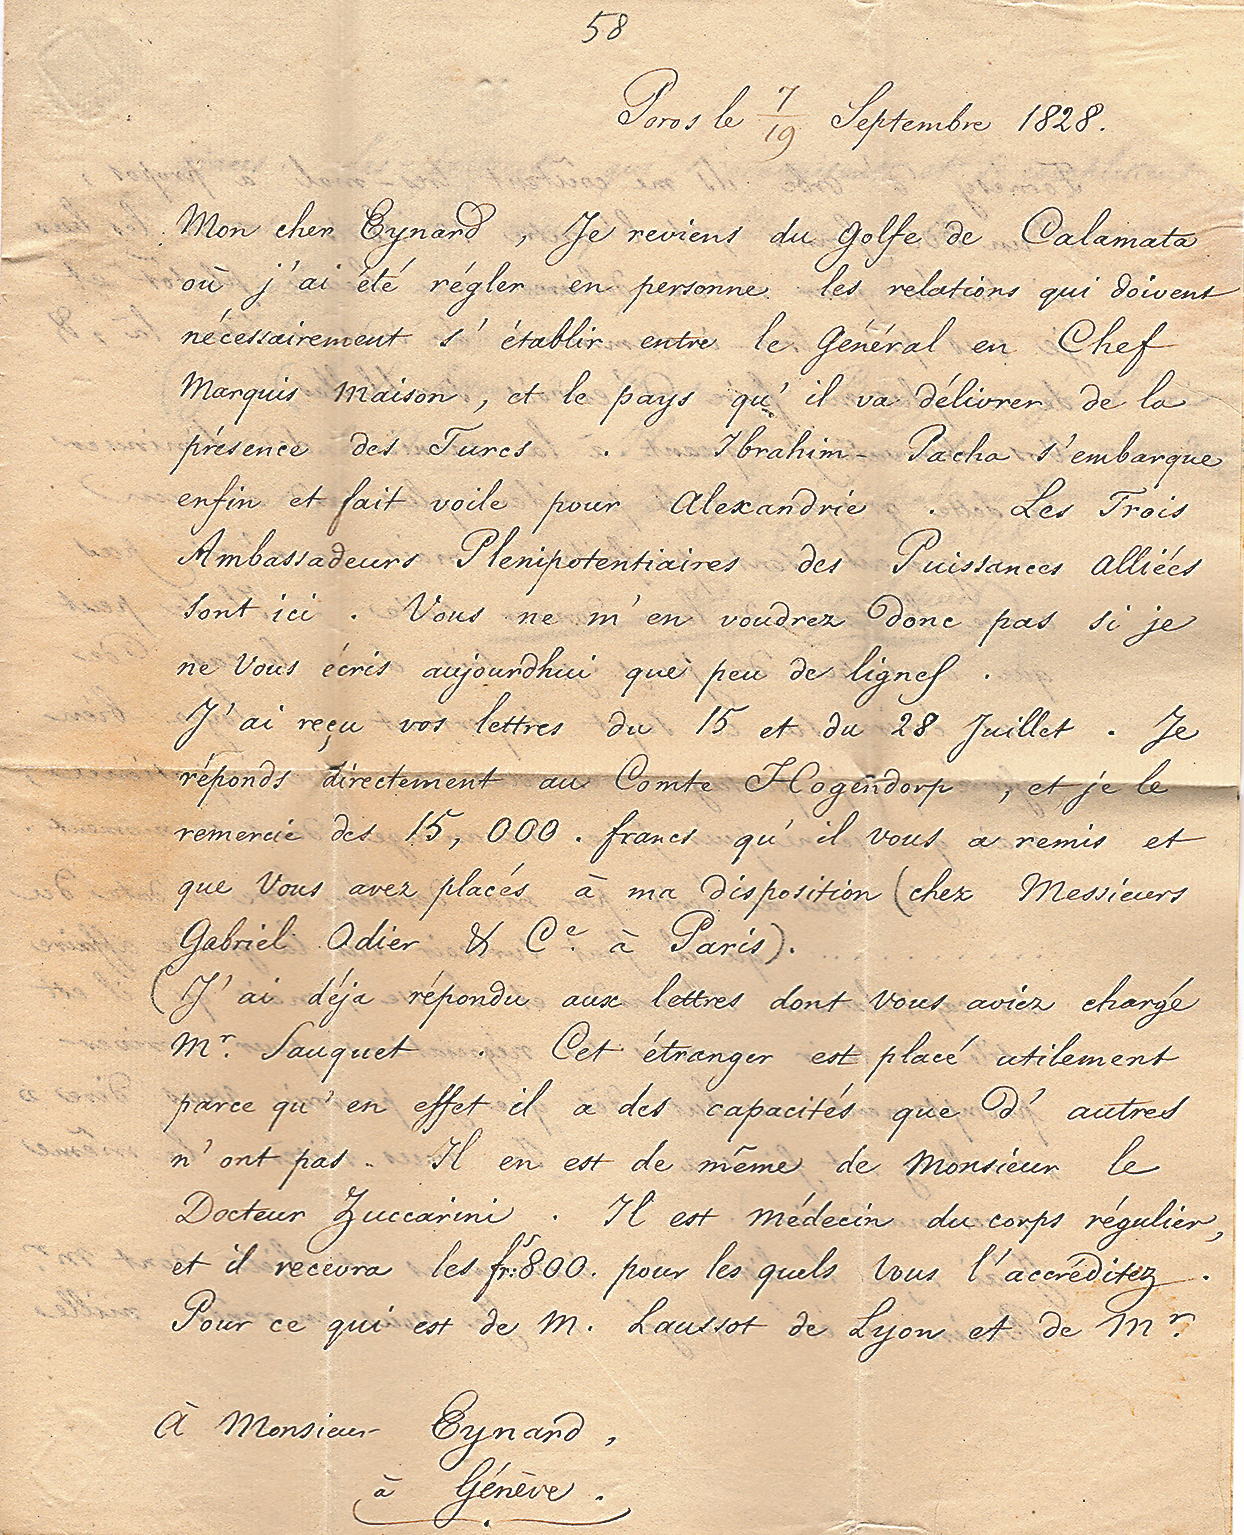 58
Poros le 7/19 Septembre 1828.
Mon cher Eynard, Je reviens du Golfe de Calamata
où j'ai été régler en personne les relations qui doivent
nécessairement s'établir entre le Général en Chef
Marquis Maison, et le pays qu'il va délivrer de la
présence des Turcs. Ibrahim-Pacha s'embarque
enfin et fait voile pour Alexandrie. Les Trois
Ambassadeurs Plenipotentiaires des Puissances Alliées
sont ici. Vous ne m'en voudrez donc pas si je
ne Vous écris aujourdhui que peu de lignes.
J'ai reçu vos lettres du 15 et du 28 Juillet. Je
réponds directement au Comte Hogendorp, et je le
remercie des 15,000. francs qu'il vous a remis et
que Vous avez placés à ma disposition (chez Messieurs
Gabriel Odier & Ce. à Paris).
(J'ai déja répondu aux lettres dont Vous aviez chargé
Mr. Sauquet. Cet étranger est placé utilement
parce qu'en effet il a des capacités que d'autres
n'ont pas. Il en est de même de Monsieur le
Docteur Zuccarini. Il est médecin du corps régulier,
et il recevra les frs: 800. pour les quels Vous l'accréditez.
Pour ce qui est de M. Laussot de Lyon et de Mr.
À Monsieur Eynard,
à Génève.